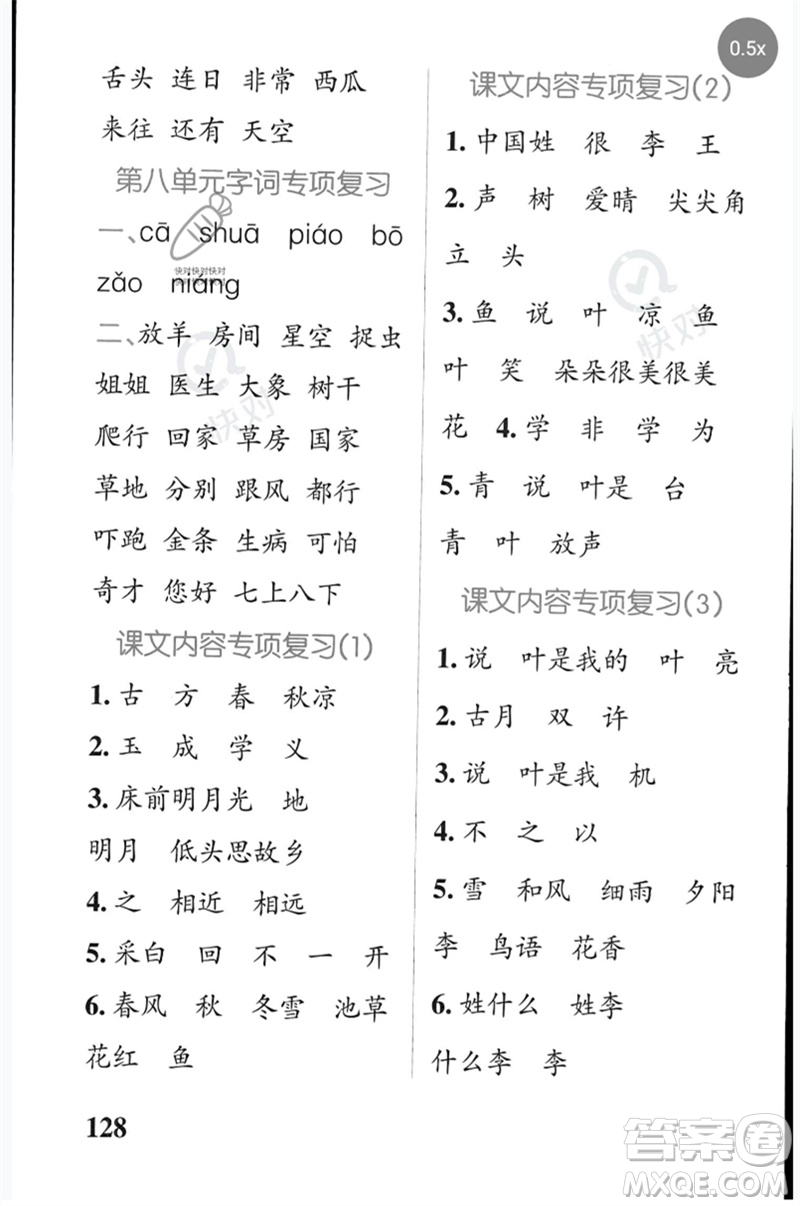 0.5x
舌头 连日 非常 西瓜
来往 还有 天空
第八单元字词专项复习
一、cā shuā piáo bō
zǎo niáng
二、放羊 房间 星空 捉虫
姐姐 医生 大象 树干
爬行 回家 草房 国家
草地 分别 跟风 都行
吓跑 金条 生病 可怕
奇才 您好 七上八下
课文内容专项复习(1)
1.古 方 春 秋凉
2.玉 成 学 义
3.床前明月光 地
明月 低头思故乡
4.之 相近 相远
5.采白 回 不 一 开
6.春风 秋 冬雪 池草
花红 鱼
128
课文内容专项复习(2)
1.中国姓 很 李 王
2.声 树 爱晴 尖尖角
立 头
3.鱼 说 叶 凉 鱼
叶 笑 朵朵很美很美
花 4.学 非 学 为
5.青 说 叶是 台
青 叶 放声
课文内容专项复习(3)
1.说 叶是我的 叶 亮
2.古月 双 许
3.说 叶是我 机
4.不 之 以
5.雪 和风 细雨 夕阳
李 鸟语 花香
6.姓什么 姓李
什么李 李
快对快对快对
快对快对快对
快对
快对
答案卷
MXQE.COM